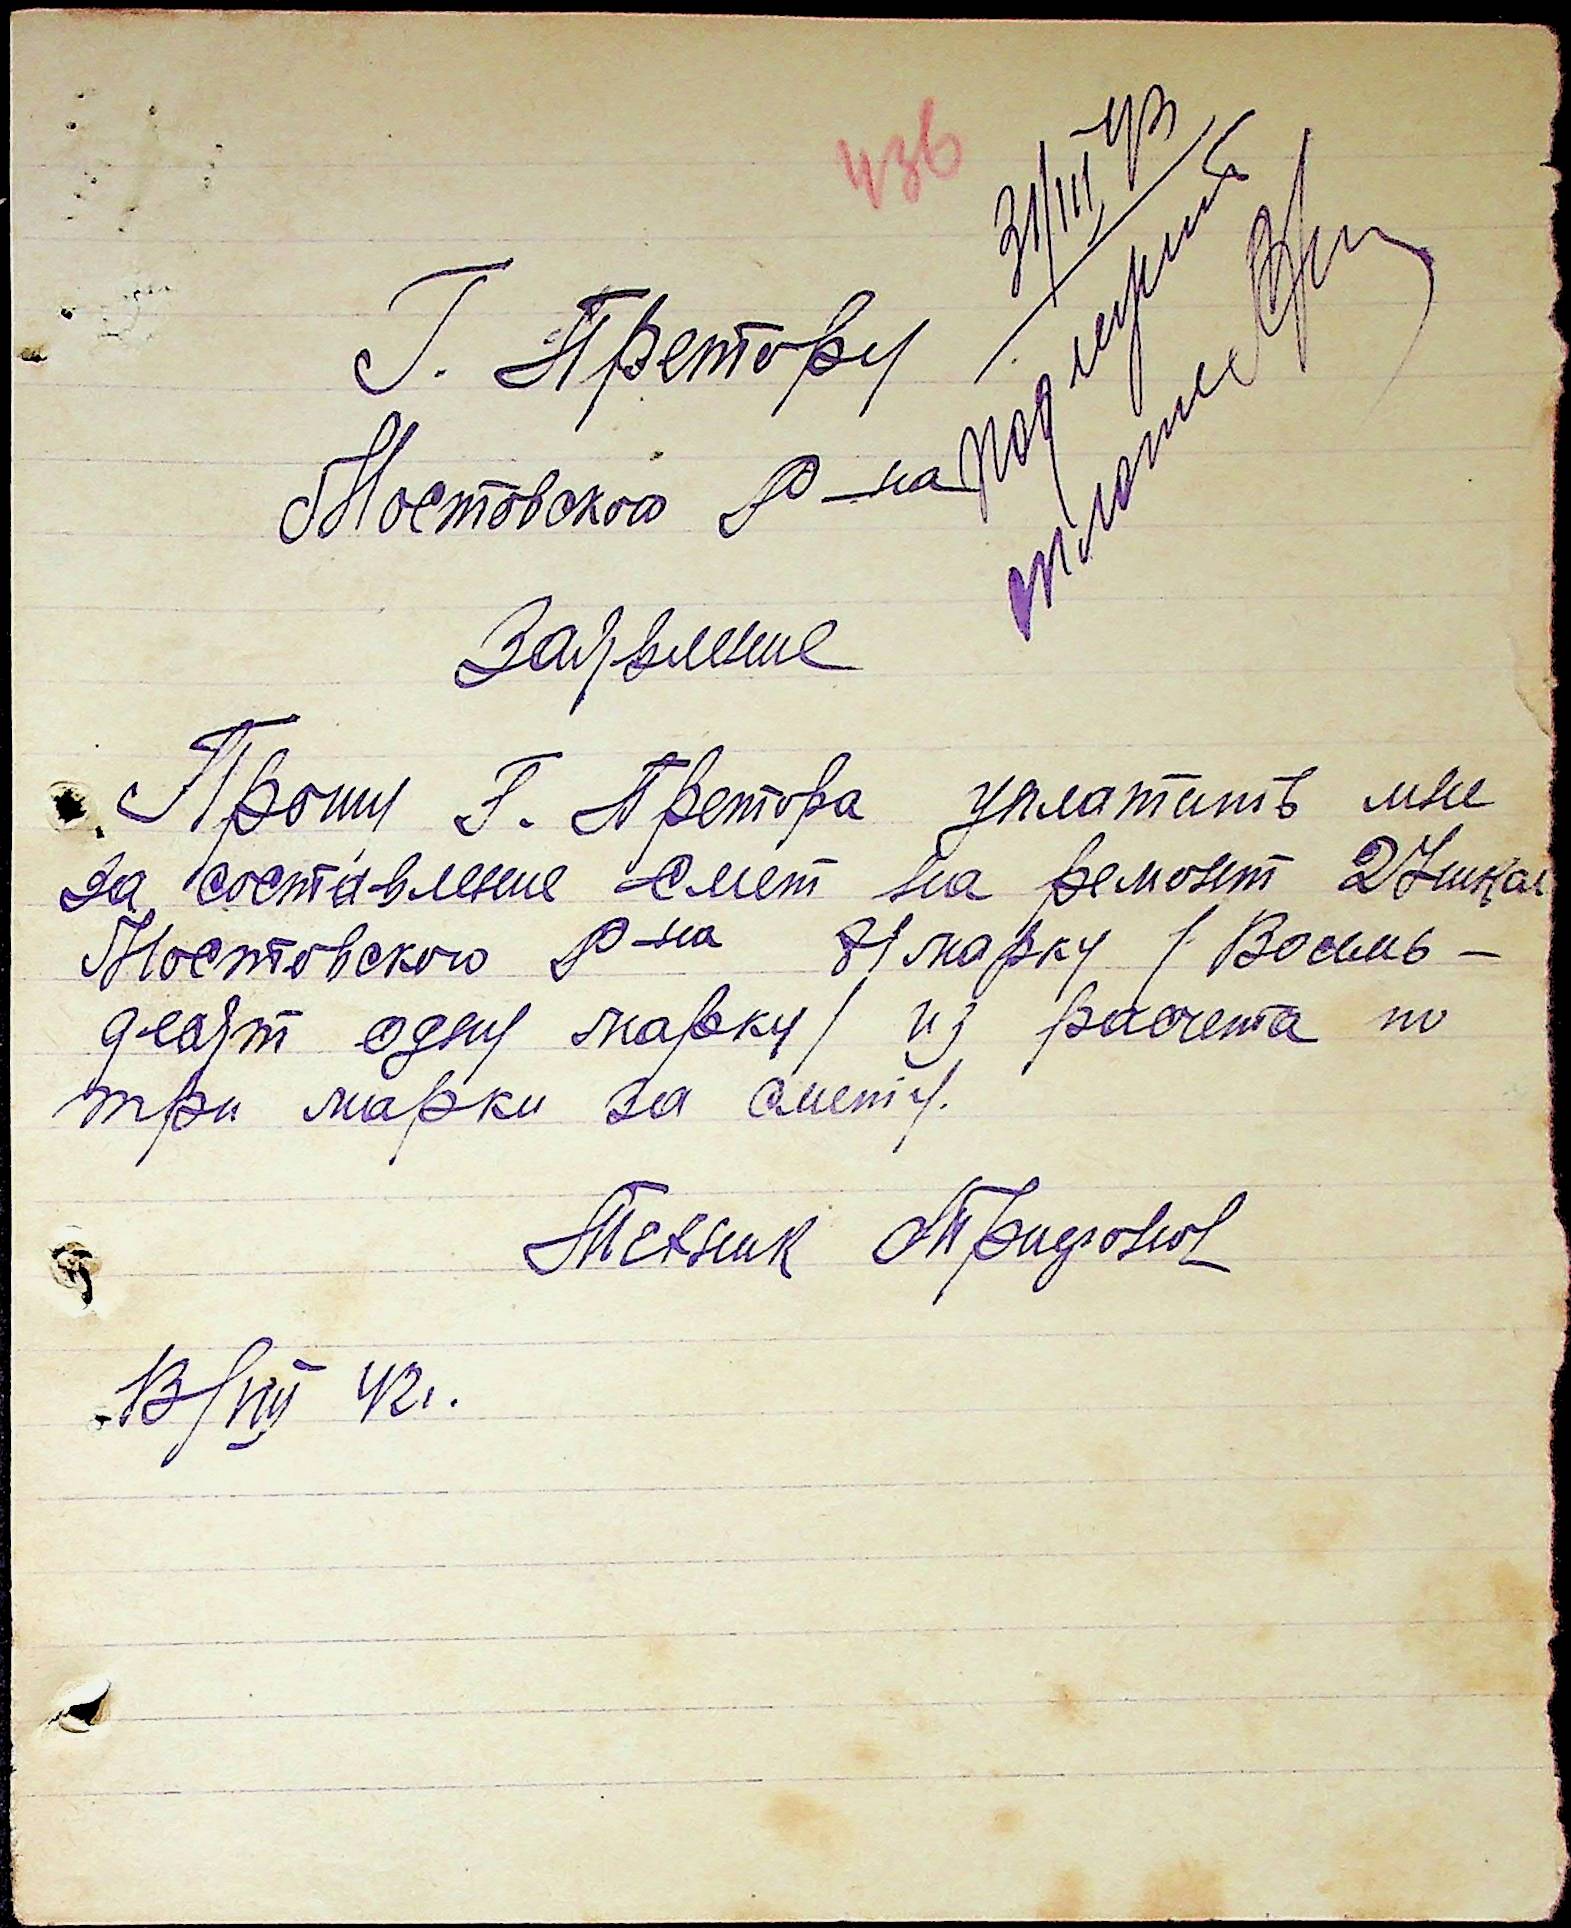 436
31/III 43
подлежит
оплате
Г. Претору
Мостовского р-на
Заявление
Прошу Г. Претора уплатить мне
за составление смет на ремонт 27 школ
Мостовского р-на 81 марку / Восемь-
десят одну марку / из расчета по
три марки за смету.
Техник Трифонов
13/VIII 42 г.